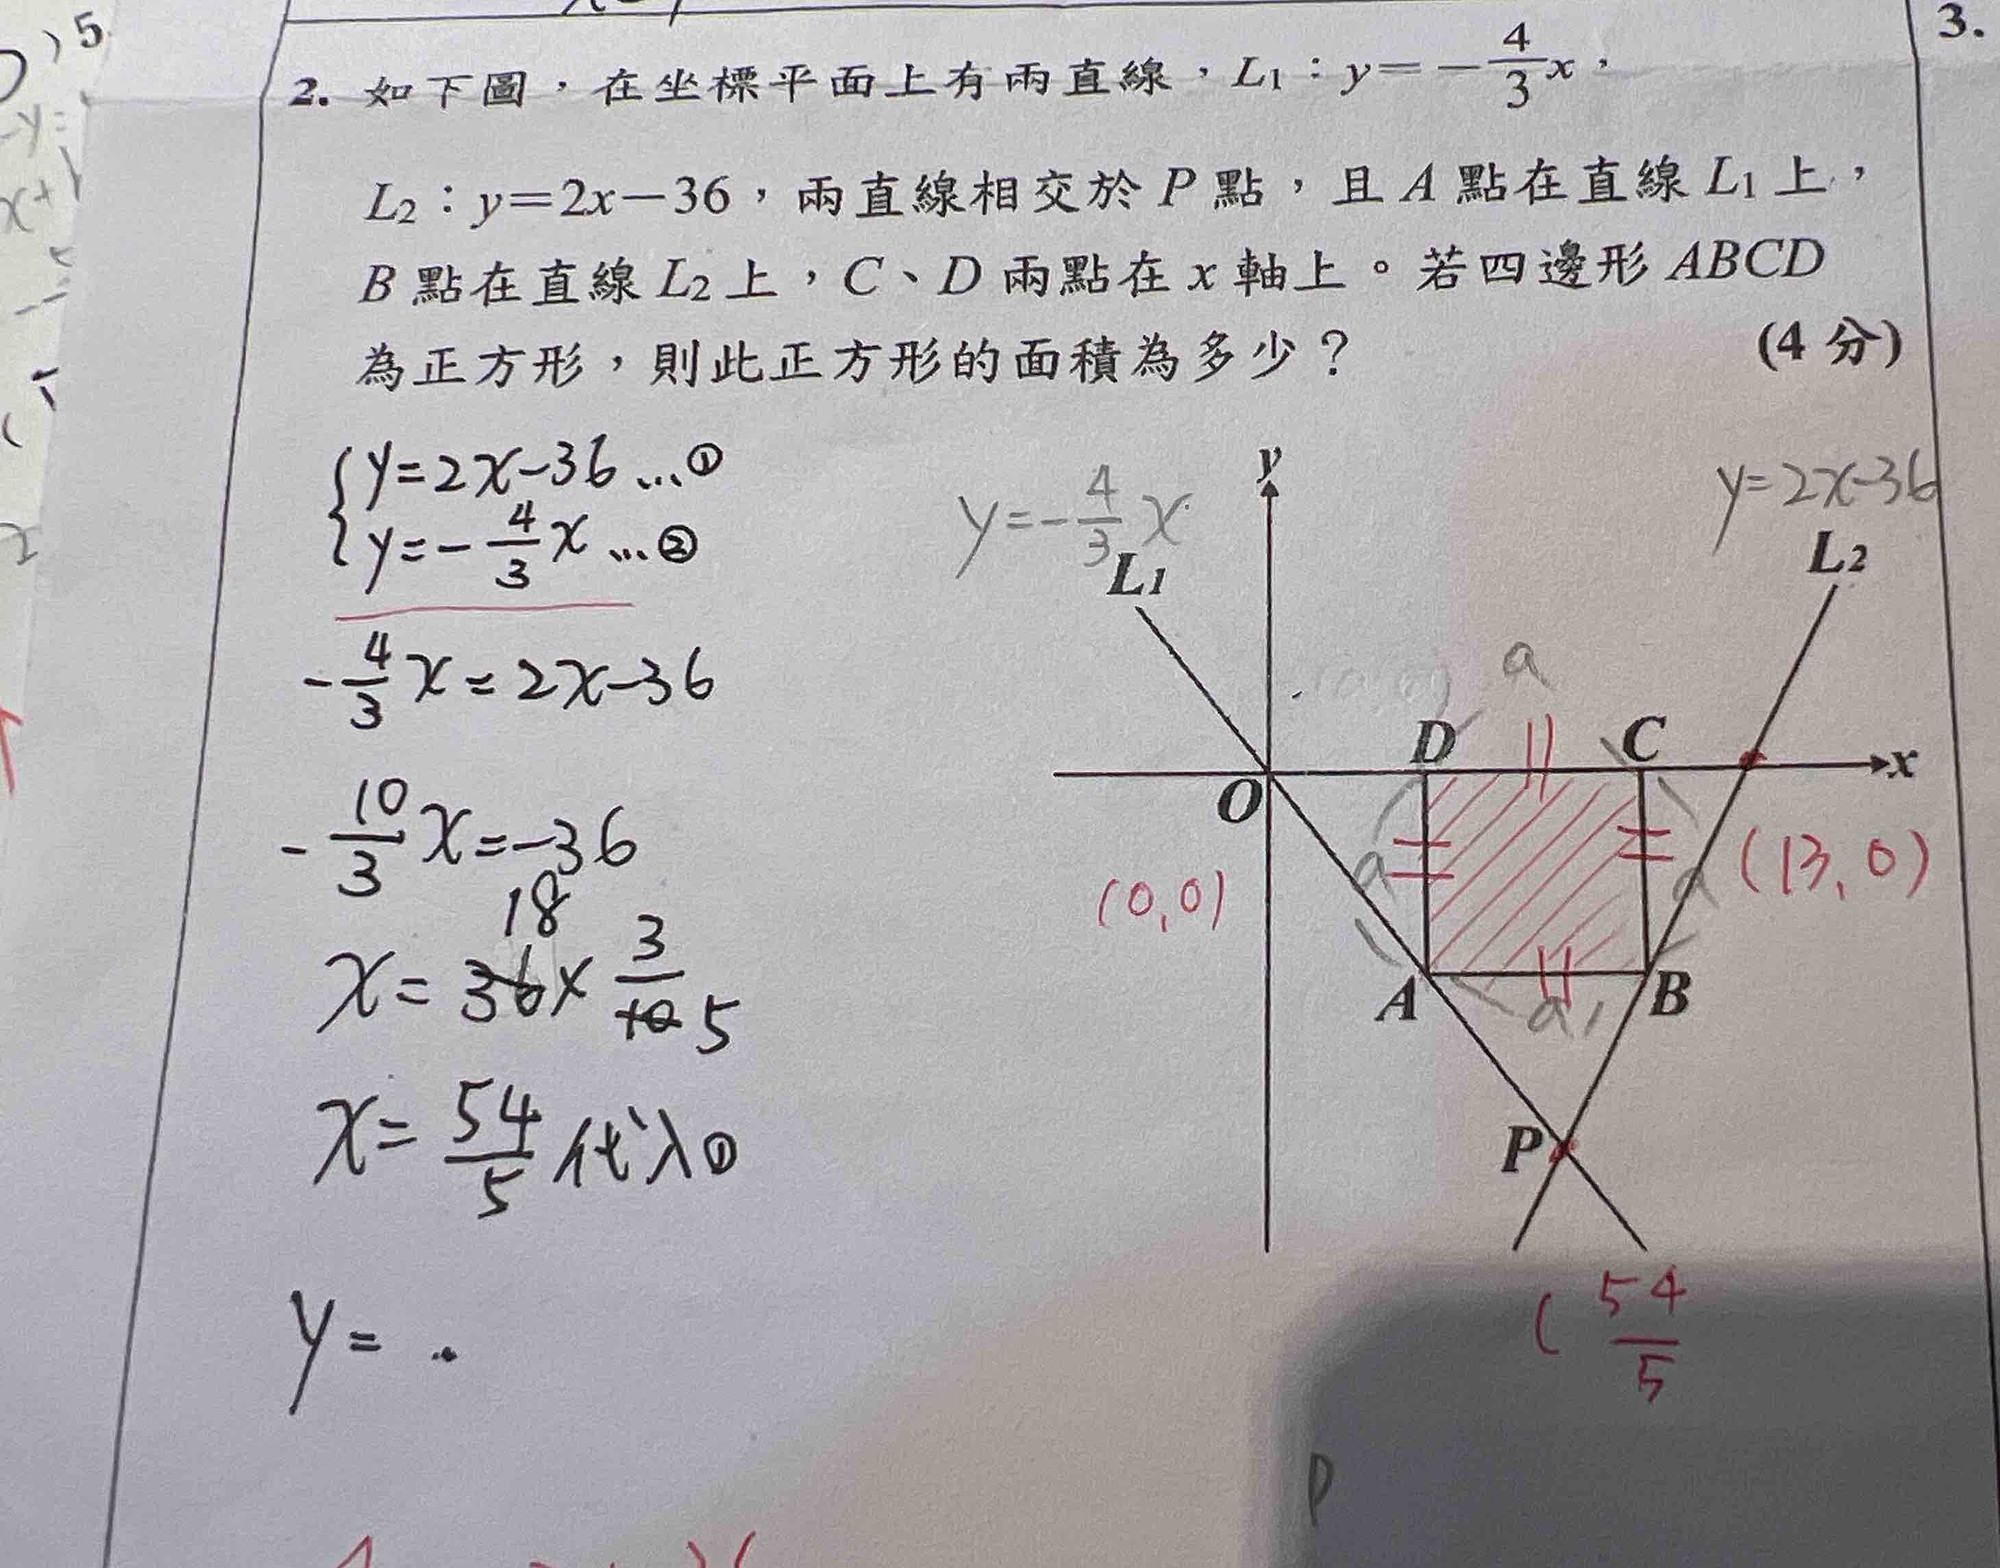 3.
2. 如下圖，在坐標平面上有兩直線，L1：y=-\frac{4}{3}x，
L2：y=2x-36，兩直線相交於P點，且A點在直線L1上，
B點在直線L2上，C、D兩點在x軸上。若四邊形ABCD
為正方形，則此正方形的面積為多少？ (4分)
y=2x-36...①
y=-\frac{4}{3}x...②
-\frac{4}{3}x=2x-36
-\frac{10}{3}x=-36
18
x=36×\frac{3}{10} 5
x=\frac{54}{5}代入①
y=
y
y=-\frac{4}{3}x
L1
y=2x-36
L2
a
D C x
O
a a
(0,0) (13,0)
A a B
P
(\frac{54}{5}
P
5